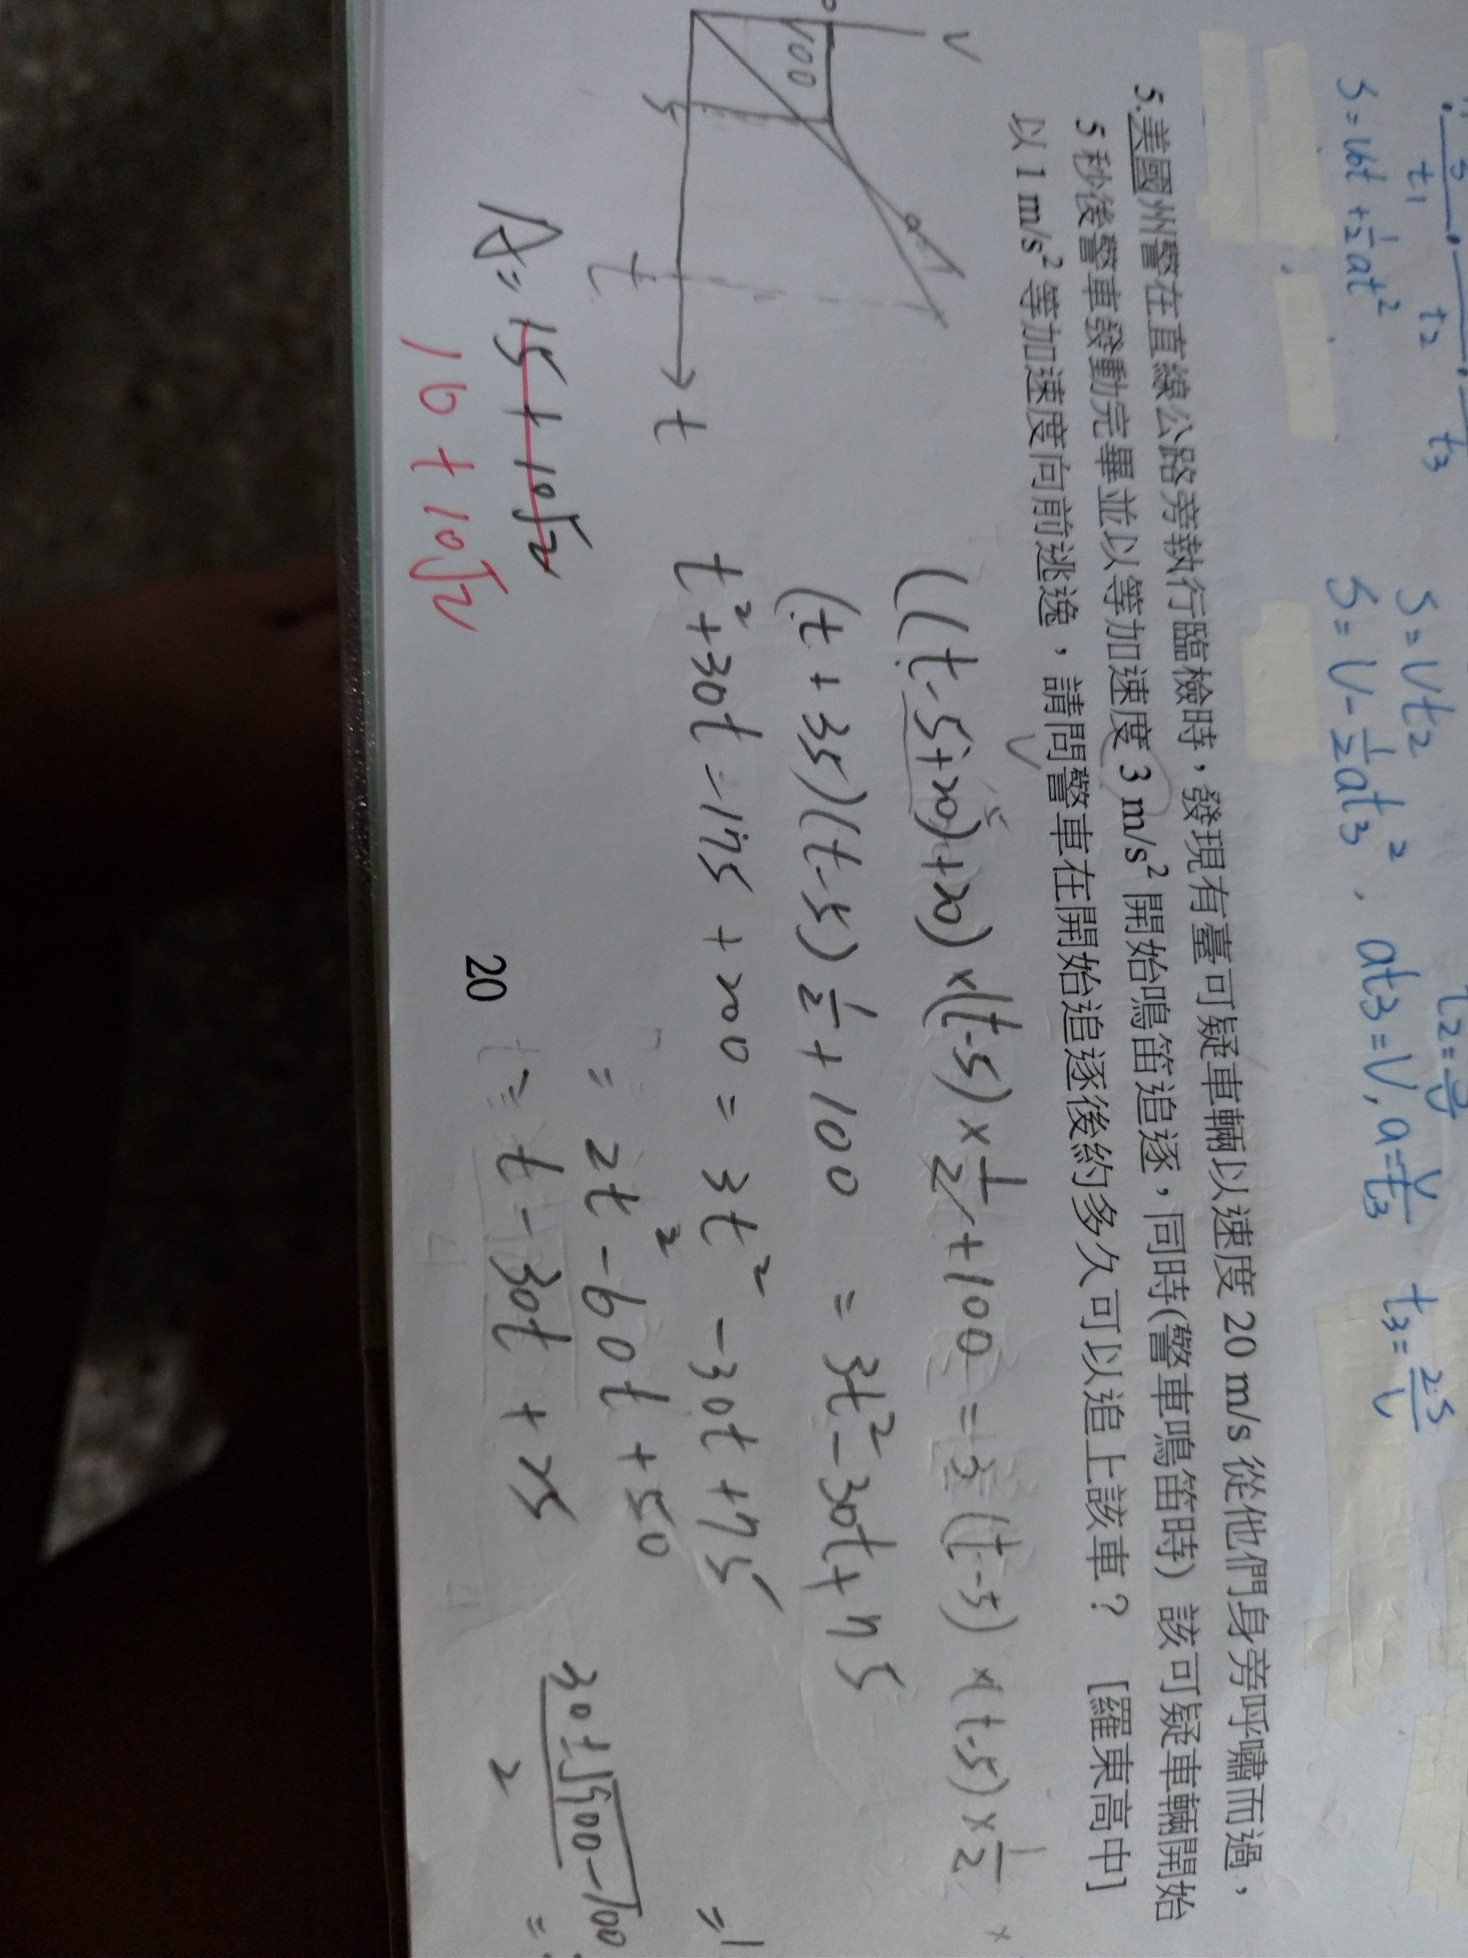 t1 t2 t3
S = V0t + 1/2 at²
S = Vt2
S = V - 1/2 at3², at3 = V, a = V/t3
t3 = 2S/V
5.美國州警在直線公路旁執行臨檢時,發現有臺可疑車輛以速度 20 m/s 從他們身旁呼嘯而過,
5 秒後警車發動完畢並以等加速度 3 m/s² 開始鳴笛追逐,同時(警車鳴笛時) 該可疑車輛開始
以 1 m/s² 等加速度向前逃逸,請問警車在開始追逐後約多久可以追上該車? [羅東高中]
V
100
5
t
t
((t-5+20)+20)×(t-5)×1/2+100 = 3(t-5)×(t-5)×1/2
(t+35)(t-5)1/2+100 = 3t²-30t+75
t²+30t-175+200 = 3t²-30t+75
= 2t²-60t+50
t²-30t+25
30±√900-100
2
A= 15+10√2
10+10√2
20